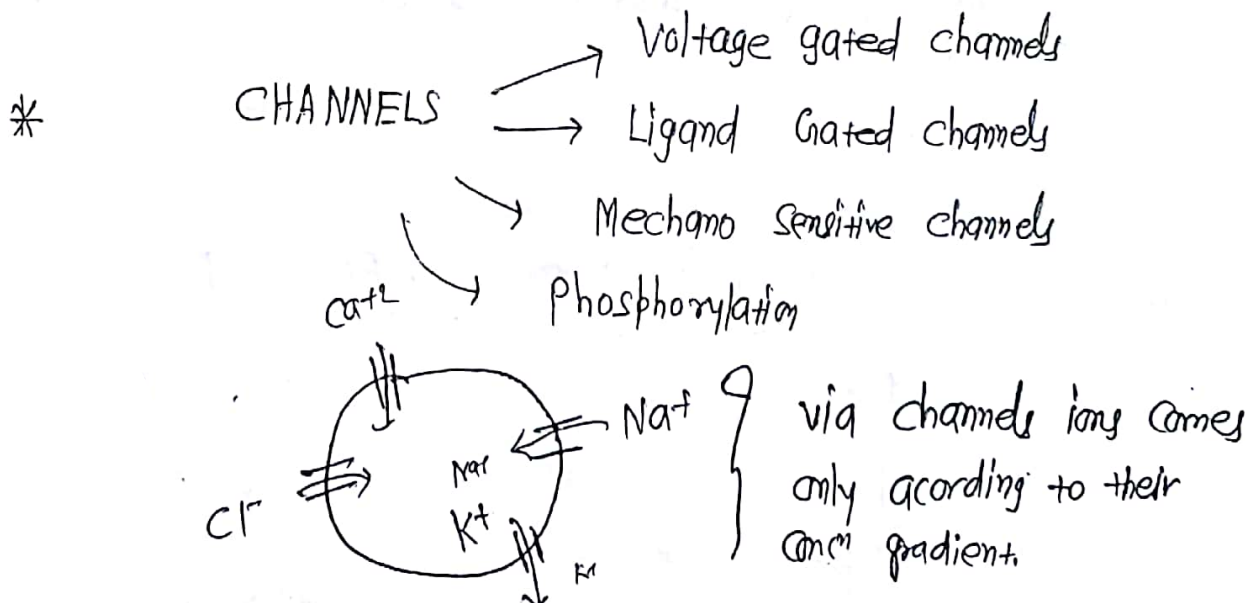 Voltage gated channels
* CHANNELS
Ligand Gated channels
Mechano Sensitive channels
Phosphorylation
Ca+2
Na+
Cl-
Na+
K+
via channels ions comes
only acording to their
concn gradient.